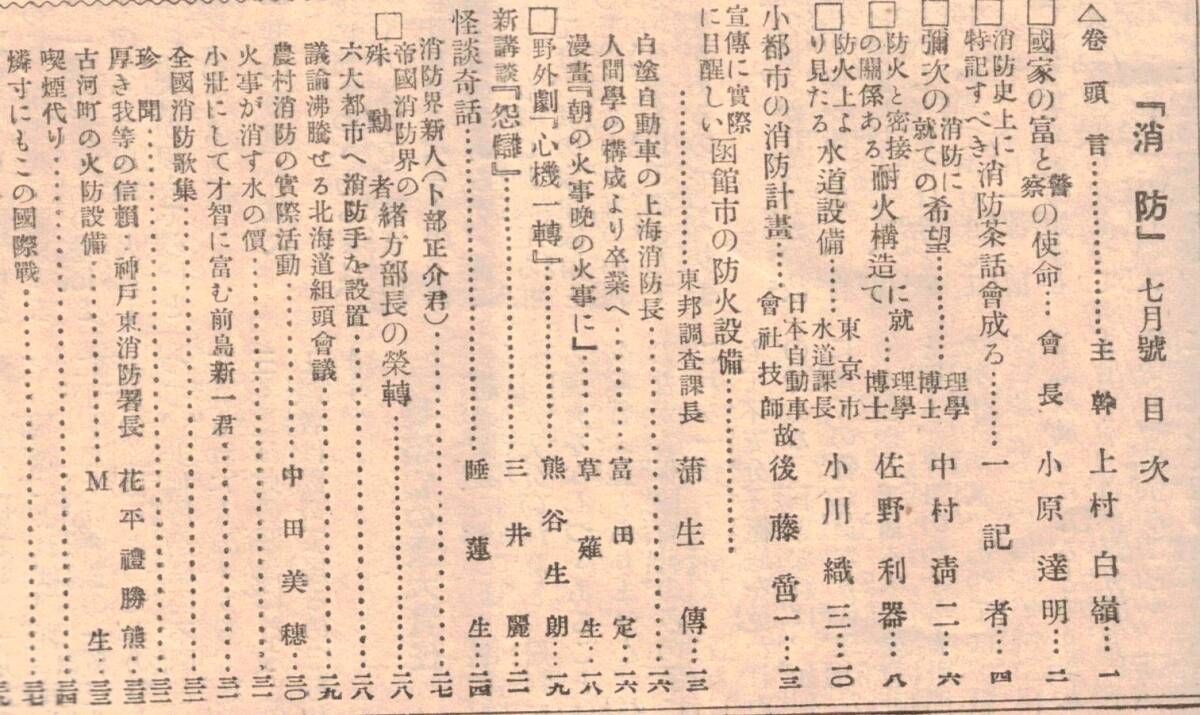 『消防』 七月號 目次
△卷頭言……主幹 上村白嶺…一
□國家の富と警察の使命…會長 小原達明…二
□消防史上に特記すべき消防茶話會成る……一記者…四
□彌次の消防に就ての希望……理學博士 中村淸二…六
□防火と密接の關係ある耐火構造に就て…理學博士 佐野利器…八
□防火上より見たる水道設備…東京市水道課長 小川織三…一〇
小都市の消防計畫…日本自動車會社技師 故後藤 一…一三
宣傳に實際に目醒しい函館市の防火設備……
……東邦調査課長 蒲生 傳…一三
白塗自動車の上海消防長……一六
人間學の構成より卒業へ……富田 定…一六
漫畫『朝の火事晩の火事に』……草薙 生…一八
□野外劇『心機一轉』……熊谷生朗…一九
新講談『怨 』……三井 麗…二一
怪談奇話……睡蓮 生…二四
消防界新人(卜部正介君)……二七
□帝國消防界の殊勳者緒方部長の榮轉……二八
六大都市へ消防手を設置……二八
議論沸騰せる北海道組頭會議……二九
農村消防の實際活動……中田美穗…三〇
火事が消す水の價……三一
小壯にして才智に富む前島新一君……三一
全國消防歌集……三二
珍聞……三二
厚き我等の信賴…神戶東消防署長 花平禮勝熊…三三
古河町の火防設備……M 生…三三
喫煙代り……三四
燐寸にもこの國際戰……三七